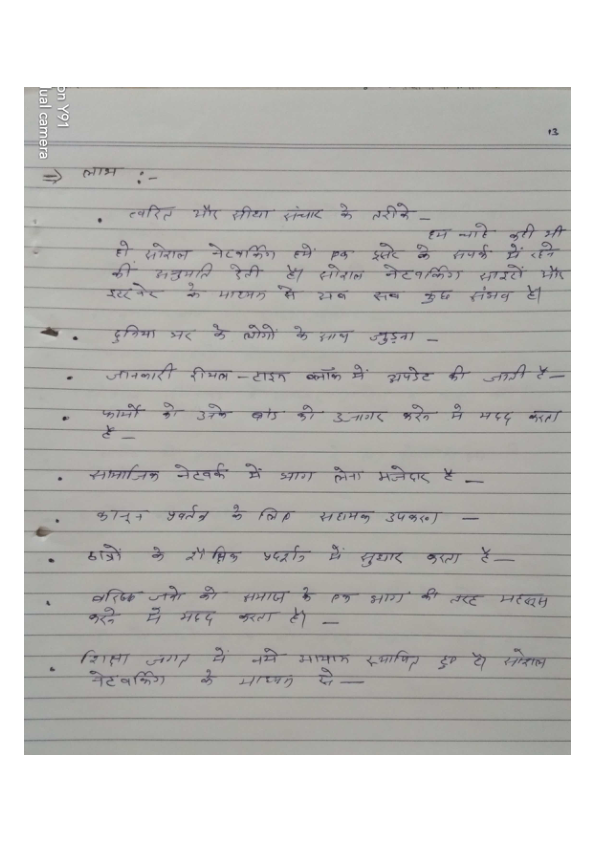 on Y91
dual camera
13
⇒ लाभ :-
• त्वरित और सीधा संचार के तरीके -
हम चाहे कही भी
हो सोशल नेटवर्किंग हमें एक दूसरे के संपर्क में रहने
की अनुमति देती है। सोशल नेटवर्किंग साइटों और
इंटरनेट के माध्यम से यब सब कुछ संभव है।
• दुनिया भर के लोगों के साथ जुड़ना -
• जानकारी रीयल-टाइम ब्लॉक में अपडेट की जाती है -
• फार्मो को उनके ब्रांड को उजागर करने मे मदद करता
है -
• सामाजिक नेटवर्क में भाग लेना मजेदार है -
• कानून प्रवर्तन के लिए सहायक उपकरण -
• छात्रों के शैक्षिक प्रदर्शन में सुधार करता है -
• वरिष्ठ जनो को समाज के एक भाग की तरह महसूस
करने मे मदद करता है। -
• शिक्षा जगत में नये मापदंड स्थापित हुए है। सोशल
नेटवर्किंग के माध्यम से -